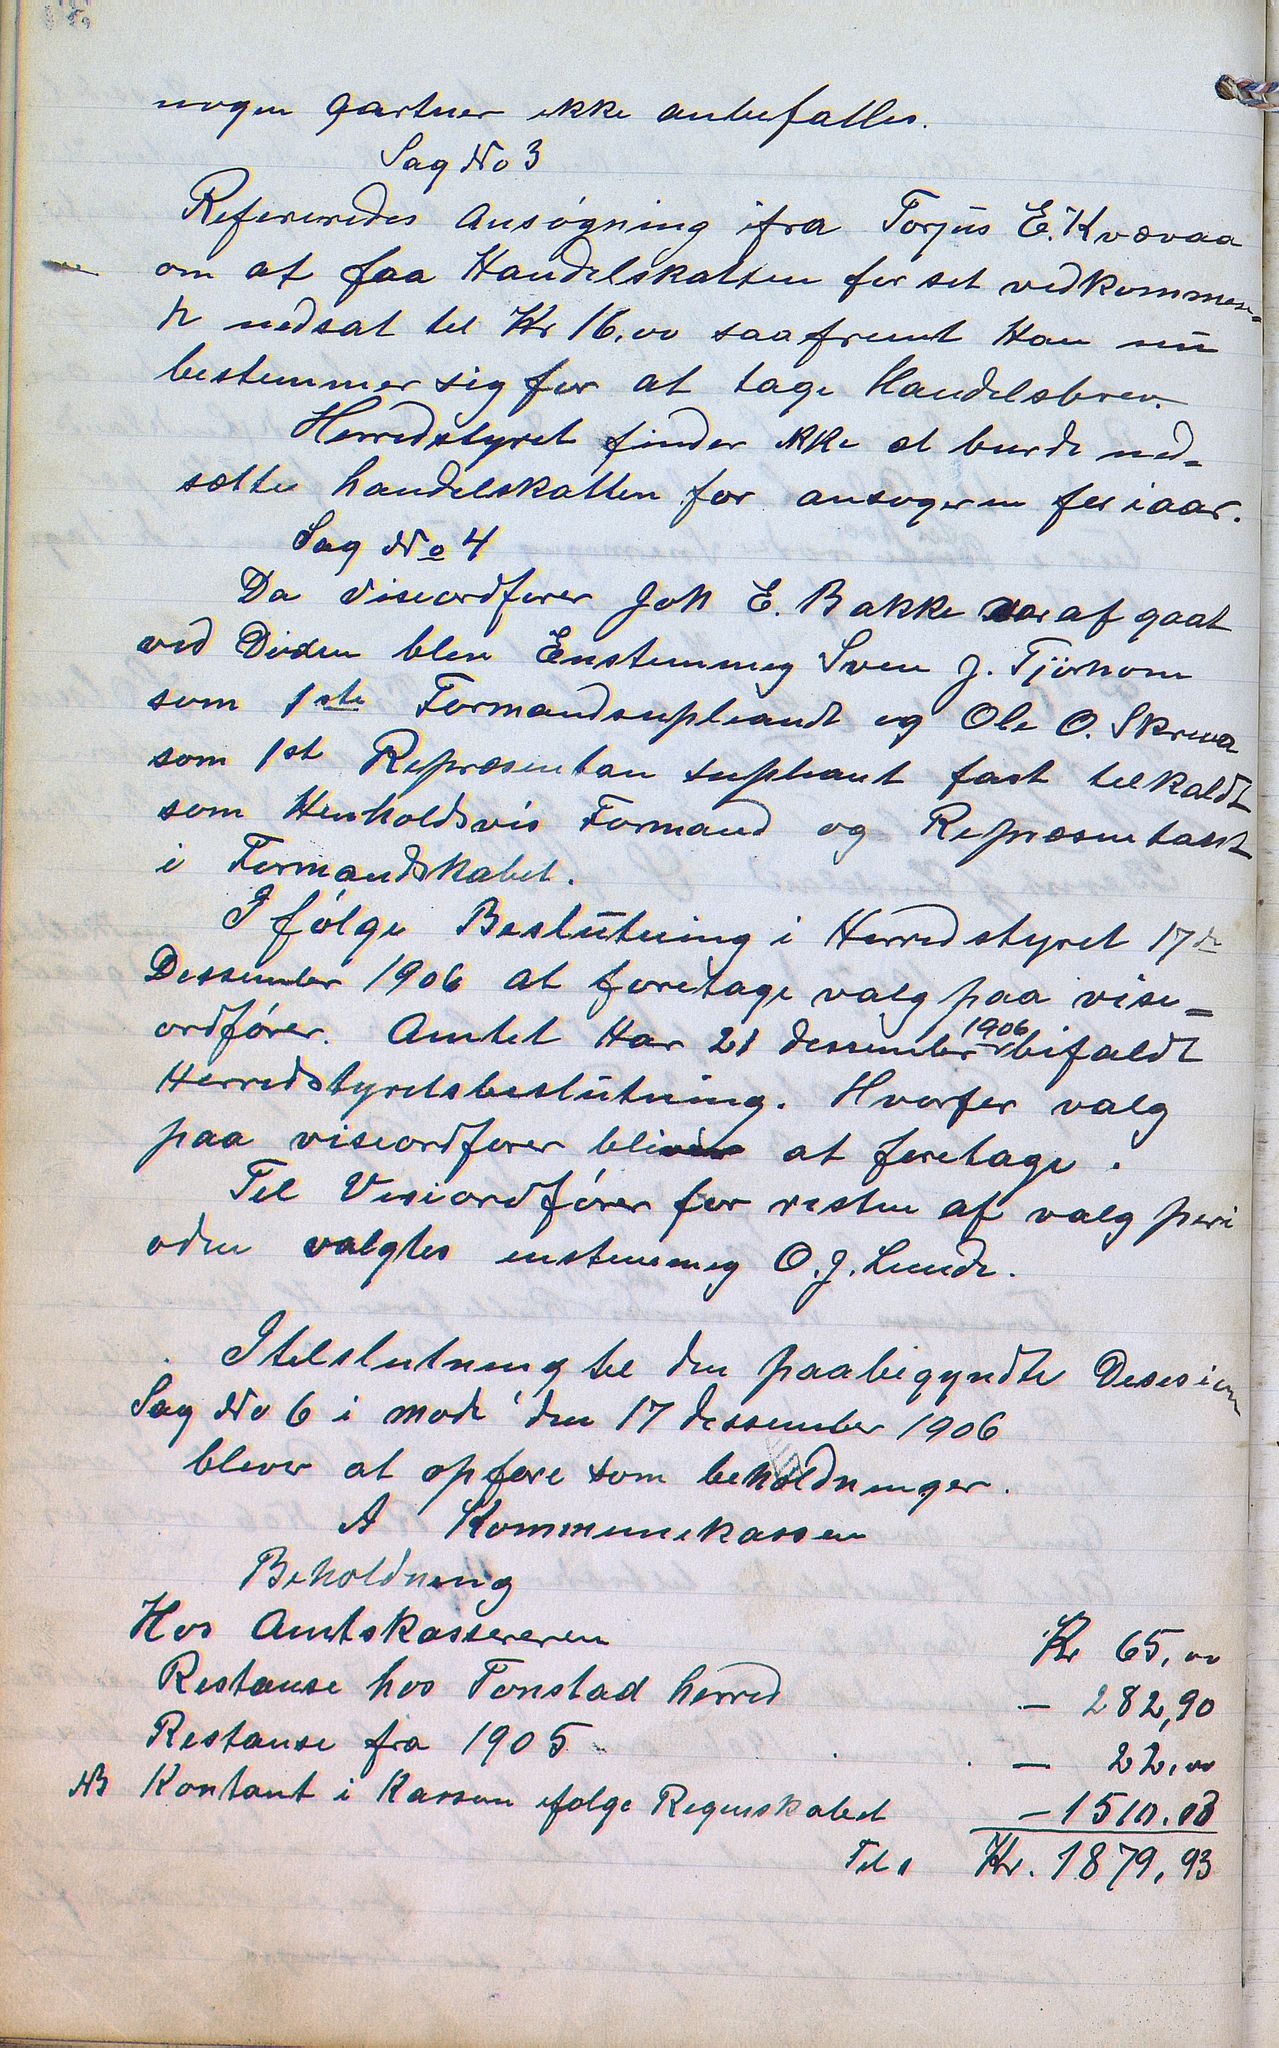 nogen Gartner ikke anbefalles.
Sag No 3
Refereredes Ansøgning ifra Torjus E. Kvævaa
om at faa Handelskatten for sit vedkommen=
de nedsat til Kr 16,00 saafremt Han nu
bestemmer sig for at tage Handelsbrev.
Herredstyret finder ikke at burde ned=
sætte handelskatten for ansøgeren for iaar.
Sag No 4
Da viseordfører Joh E. Bakke var af gaat
ved Døden blev Enstemmig Sven J. Tjörhom
som 1ste Formandsupleandt og Ole O. Skreaa
som 1st Repræsentan supleant fast tilkaldt
som Henholdsvis Formand og Repræsentant
i Formandskabet.
I følge Beslutning i Herredstyret 17de
Dessember 1906 at foretage valg paa vise=
ordfører. Amtet Har 21 dessember 1906 bifaldt
Herredstyretsbeslutning. Hvorfor valg
paa viseordfører bliver at foretage.
Til Viseordfører for resten af valg peri
oden valgtes enstemmig O. J. Lunde.
I tilslutning til den paabegyndte Desesion
Sag No 6 i møde den 17 dessember 1906
blever at opføre som beholdninger.
A Kommunekassen
Beholdning
Hos Amtskassereren Kr 65,00
Restanse hos Tonstad herred — 282,90
Restanse fra 1905 — 22,00
NB Kontant i Kassen ifølge Regnskabet — 1510.03
Tils Kr. 1879,93